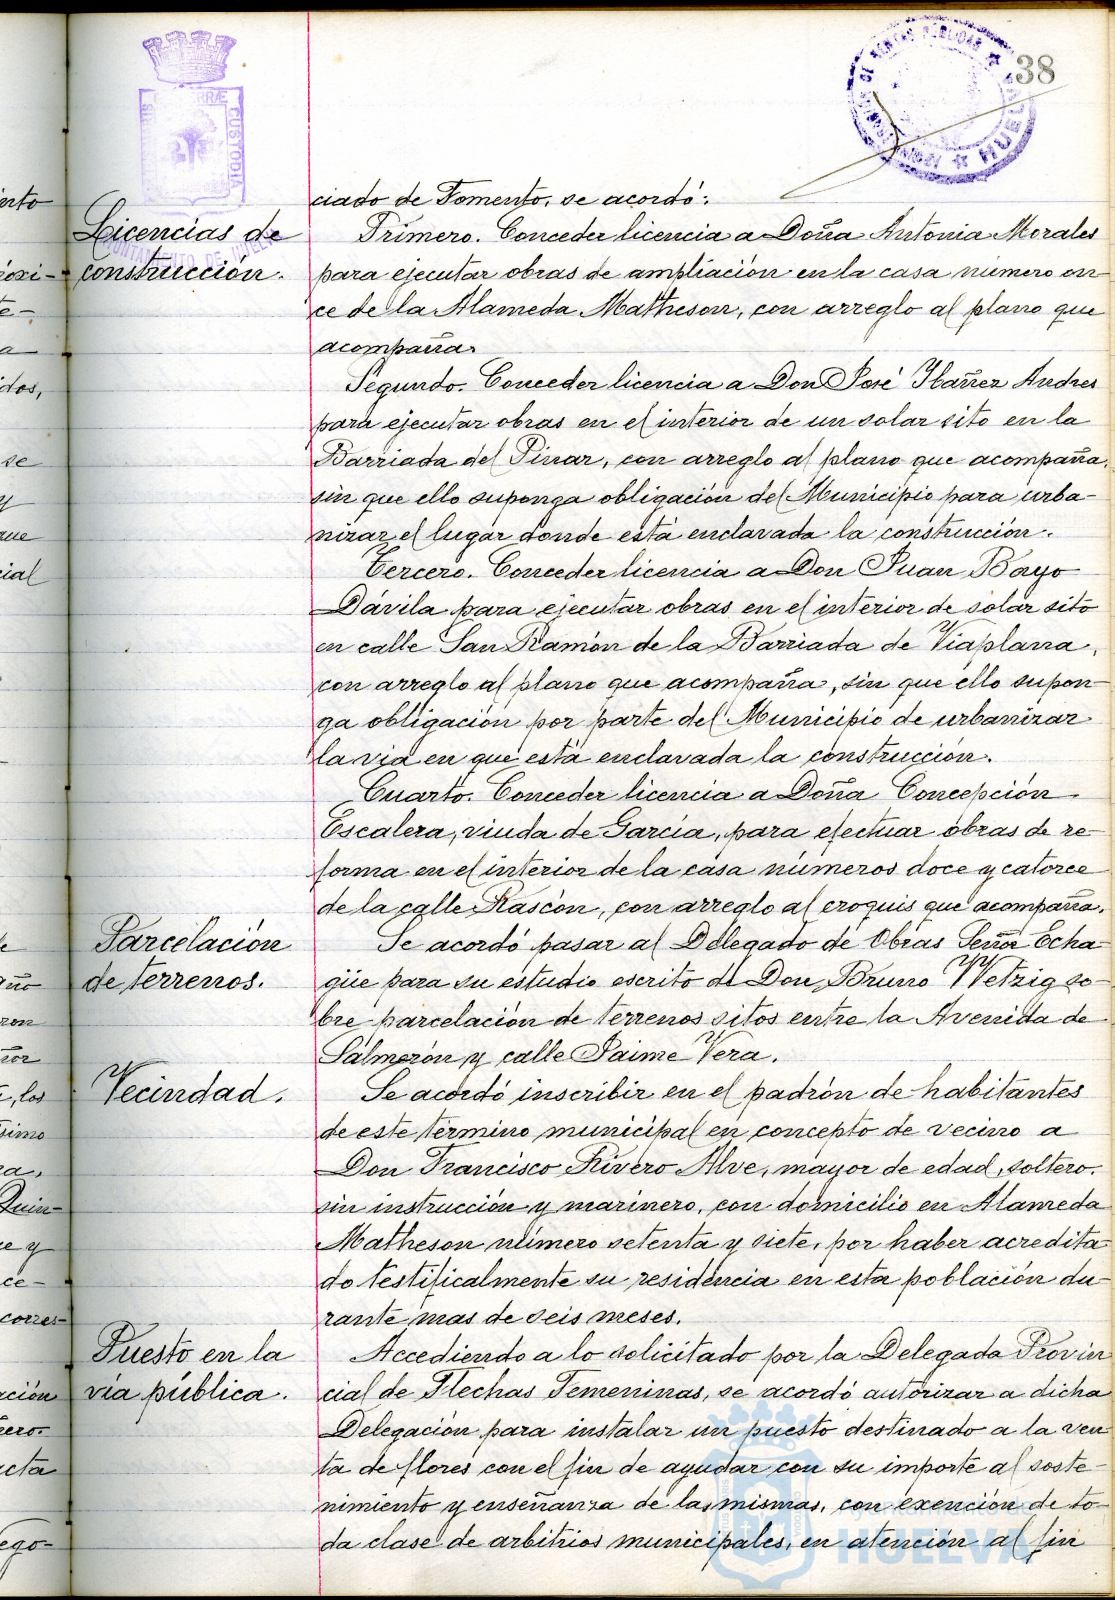 38
PORTUS MARIS ET TERRÆ CUSTODIA
ADMINISTRACIÓN DE RENTAS PÚBLICAS
HUELVA
ciado de Fomento, se acordó:
Licencias de
construcción.
Primero. Conceder licencia a Doña Antonia Morales
para ejecutar obras de ampliación en la casa número on
ce de la Alameda Matheson, con arreglo al plano que
acompaña.
Segundo. Conceder licencia a Don José Ibañez Andres
para ejecutar obras en el interior de un solar sito en la
Barriada del Pinar, con arreglo al plano que acompaña,
sin que ello suponga obligación del Municipio para urba-
nizar el lugar donde está enclavada la construcción.
Tercero. Conceder licencia a Don Juan Bayo
Dávila para ejecutar obras en el interior de solar sito
en calle San Ramón de la Barriada de Viaplana,
con arreglo al plano que acompaña, sin que ello supon-
ga obligación por parte del Municipio de urbanizar
la via en que está enclavada la construcción.
Cuarto. Conceder licencia a Doña Concepción
Escalera, viuda de García, para efectuar obras de re-
forma en el interior de la casa números doce y catorce
de la calle Rascón, con arreglo al croquis que acompaña.
Parcelación
de terrenos.
Se acordó pasar al Delegado de Obras Señor Echa-
güe para su estudio escrito de Don Bruno Wetzig so-
bre parcelación de terrenos sitos entre la Avenida de
Salmerón y calle Jaime Vera.
Vecindad.
Se acordó inscribir en el padrón de habitantes
de este término municipal en concepto de vecino a
Don Francisco Rivero Alve, mayor de edad, soltero,
sin instrucción y marinero, con domicilio en Alameda
Matheson número setenta y siete, por haber acredita-
do testificalmente su residencia en esta población du-
rante mas de seis meses.
Puesto en la
via pública.
Accediendo a lo solicitado por la Delegada Provin
cial de Flechas Femeninas, se acordó autorizar a dicha
Delegación para instalar un puesto destinado a la ven
ta de flores con el fin de ayudar con su importe al soste-
nimiento y enseñanza de las mismas, con exención de to-
da clase de arbitrios municipales, en atención al fin
Ayuntamiento de
HUELVA